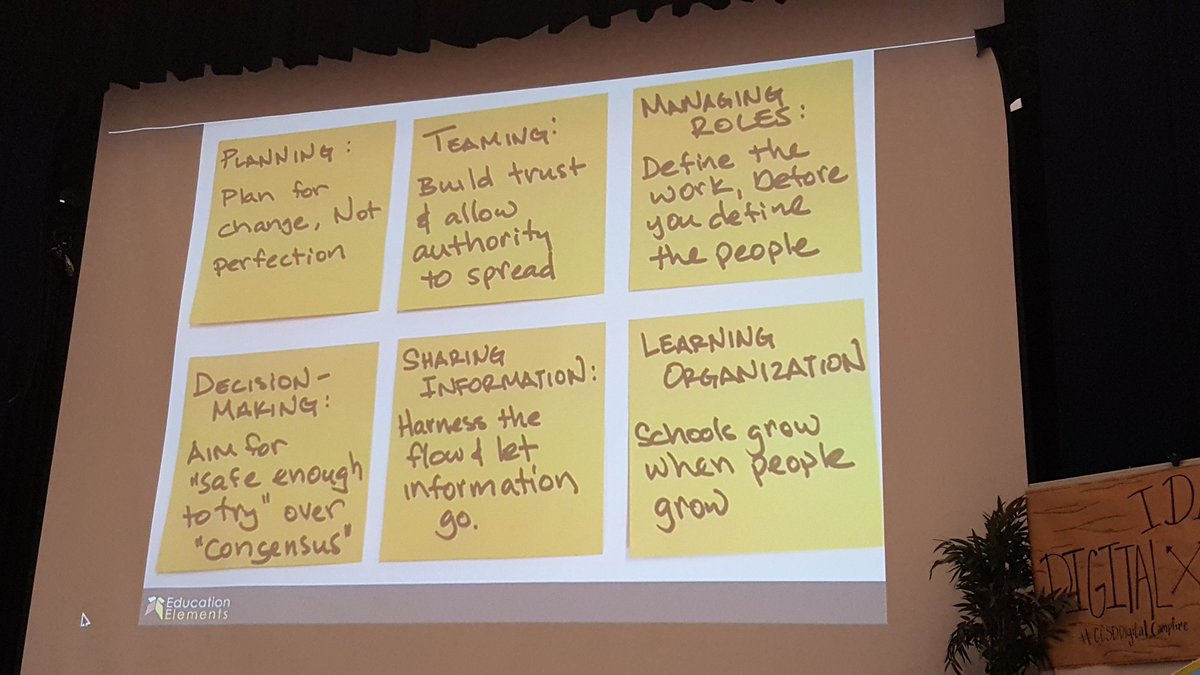 PLANNING:
Plan for
change, Not
perfection
TEAMING:
Build trust
& allow
authority
to spread
MANAGING
ROLES:
Define the
work, before
you define
the people
DECISION-
MAKING:
AIM for
"safe enough
to try" over
"consensus"
SHARING
INFORMATION:
Harness the
flow & let
information
go.
LEARNING
ORGANIZATION
Schools grow
when people
grow
Education
Elements
DIGITAL
#CCSDDigitalCampfire